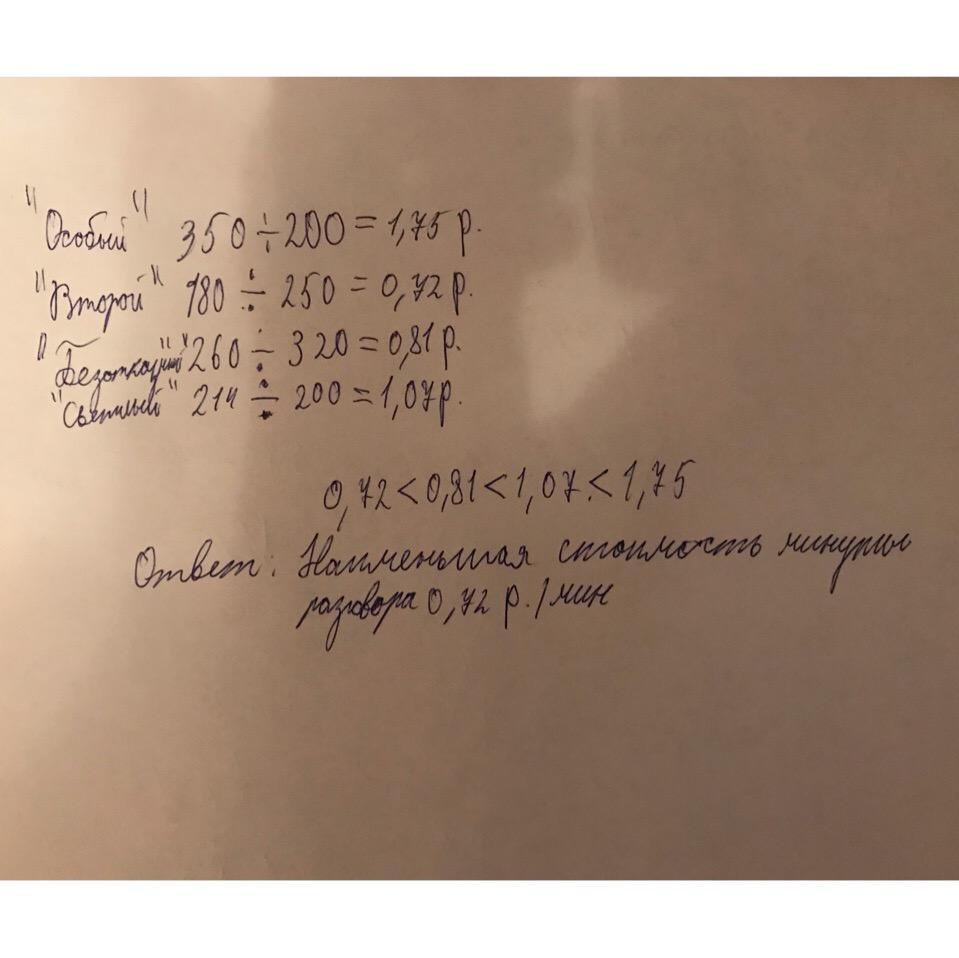 "Особый" 350 ÷ 200 = 1,75 р.
"Второй" 180 ÷ 250 = 0,72 р.
"Безоткатный" 260 ÷ 320 = 0,81 р.
"Светлый" 214 ÷ 200 = 1,07 р.
0,72 < 0,81 < 1,07 < 1,75
Ответ: Наименьшая стоимость минуты
разговора 0,72 р./мин